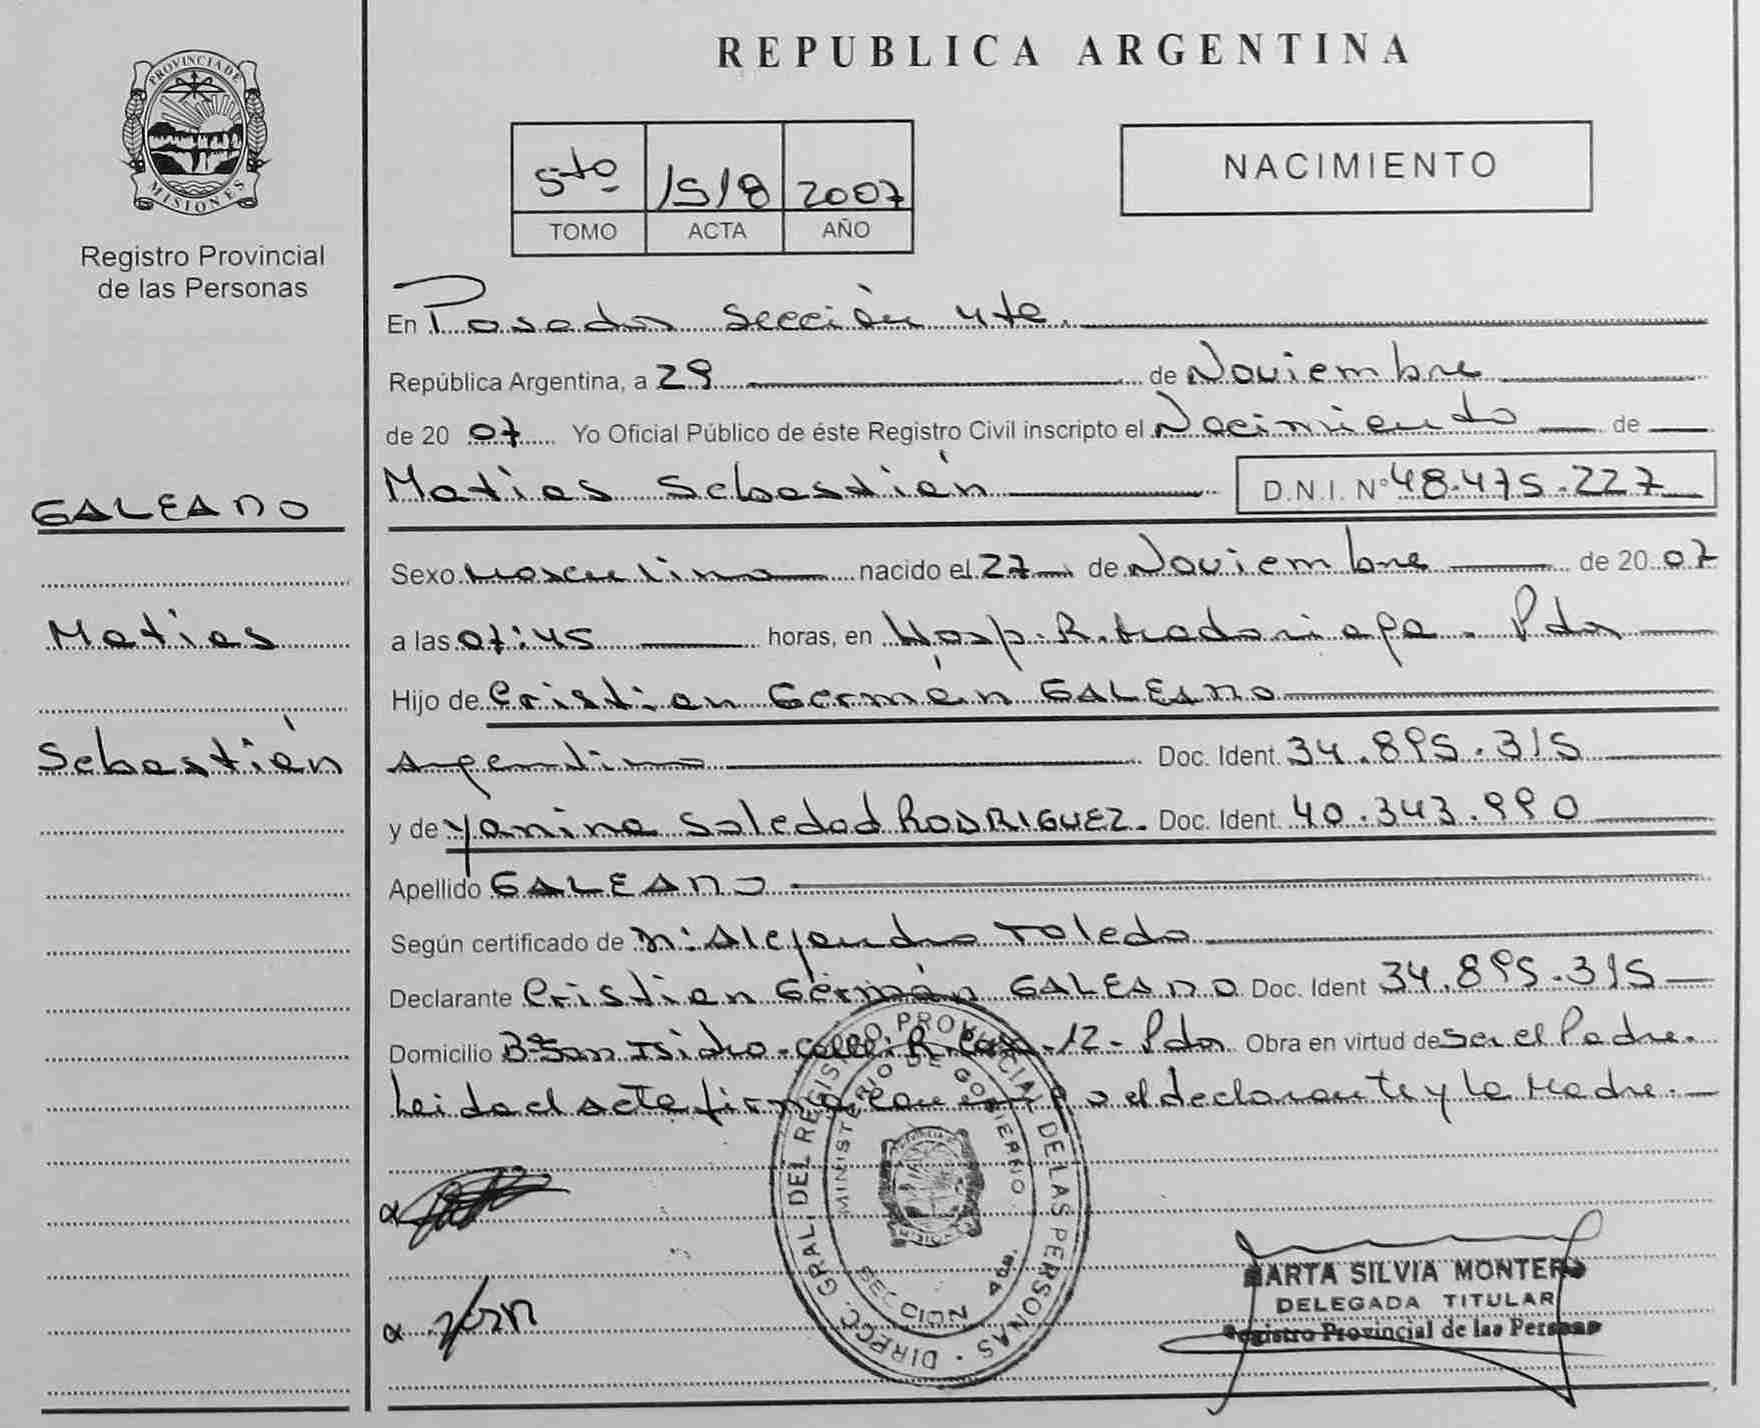 PROVINCIA DE
MISIONES
Registro Provincial
de las Personas
GALEANO
Matias
Sebastián
REPUBLICA ARGENTINA
5to 1518 2007
TOMO ACTA AÑO
NACIMIENTO
En Posadas Sección 4ta.
República Argentina, a 29 de Noviembre
de 2007 Yo Oficial Público de éste Registro Civil inscripto el Nacimiento de
Matias Sebastián D.N.I. Nº 48.475.227
Sexo Masculino nacido el 27 de Noviembre de 2007
a las 07:45 horas, en Hosp. R. Madariaga - Pdas
Hijo de Cristian Germán GALEANO
Argentino Doc. Ident. 34.895.315
y de Yanina Soledad RODRIGUEZ. Doc. Ident. 40.343.990
Apellido GALEANO
Según certificado de Alejandro Toledo
Declarante Cristian Germán GALEANO Doc. Ident 34.895.315
Domicilio Bº San Isidro - 12 - Pdas Obra en virtud de ser el Padre.
Leida el acta el declarante y la Madre.
DIRECC. GRAL. DEL REGISTRO PROVINCIAL DE LAS PERSONAS
MINISTERIO DE GOBIERNO
SECCION 4ta.
MARTA SILVIA MONTERO
DELEGADA TITULAR
Registro Provincial de las Personas